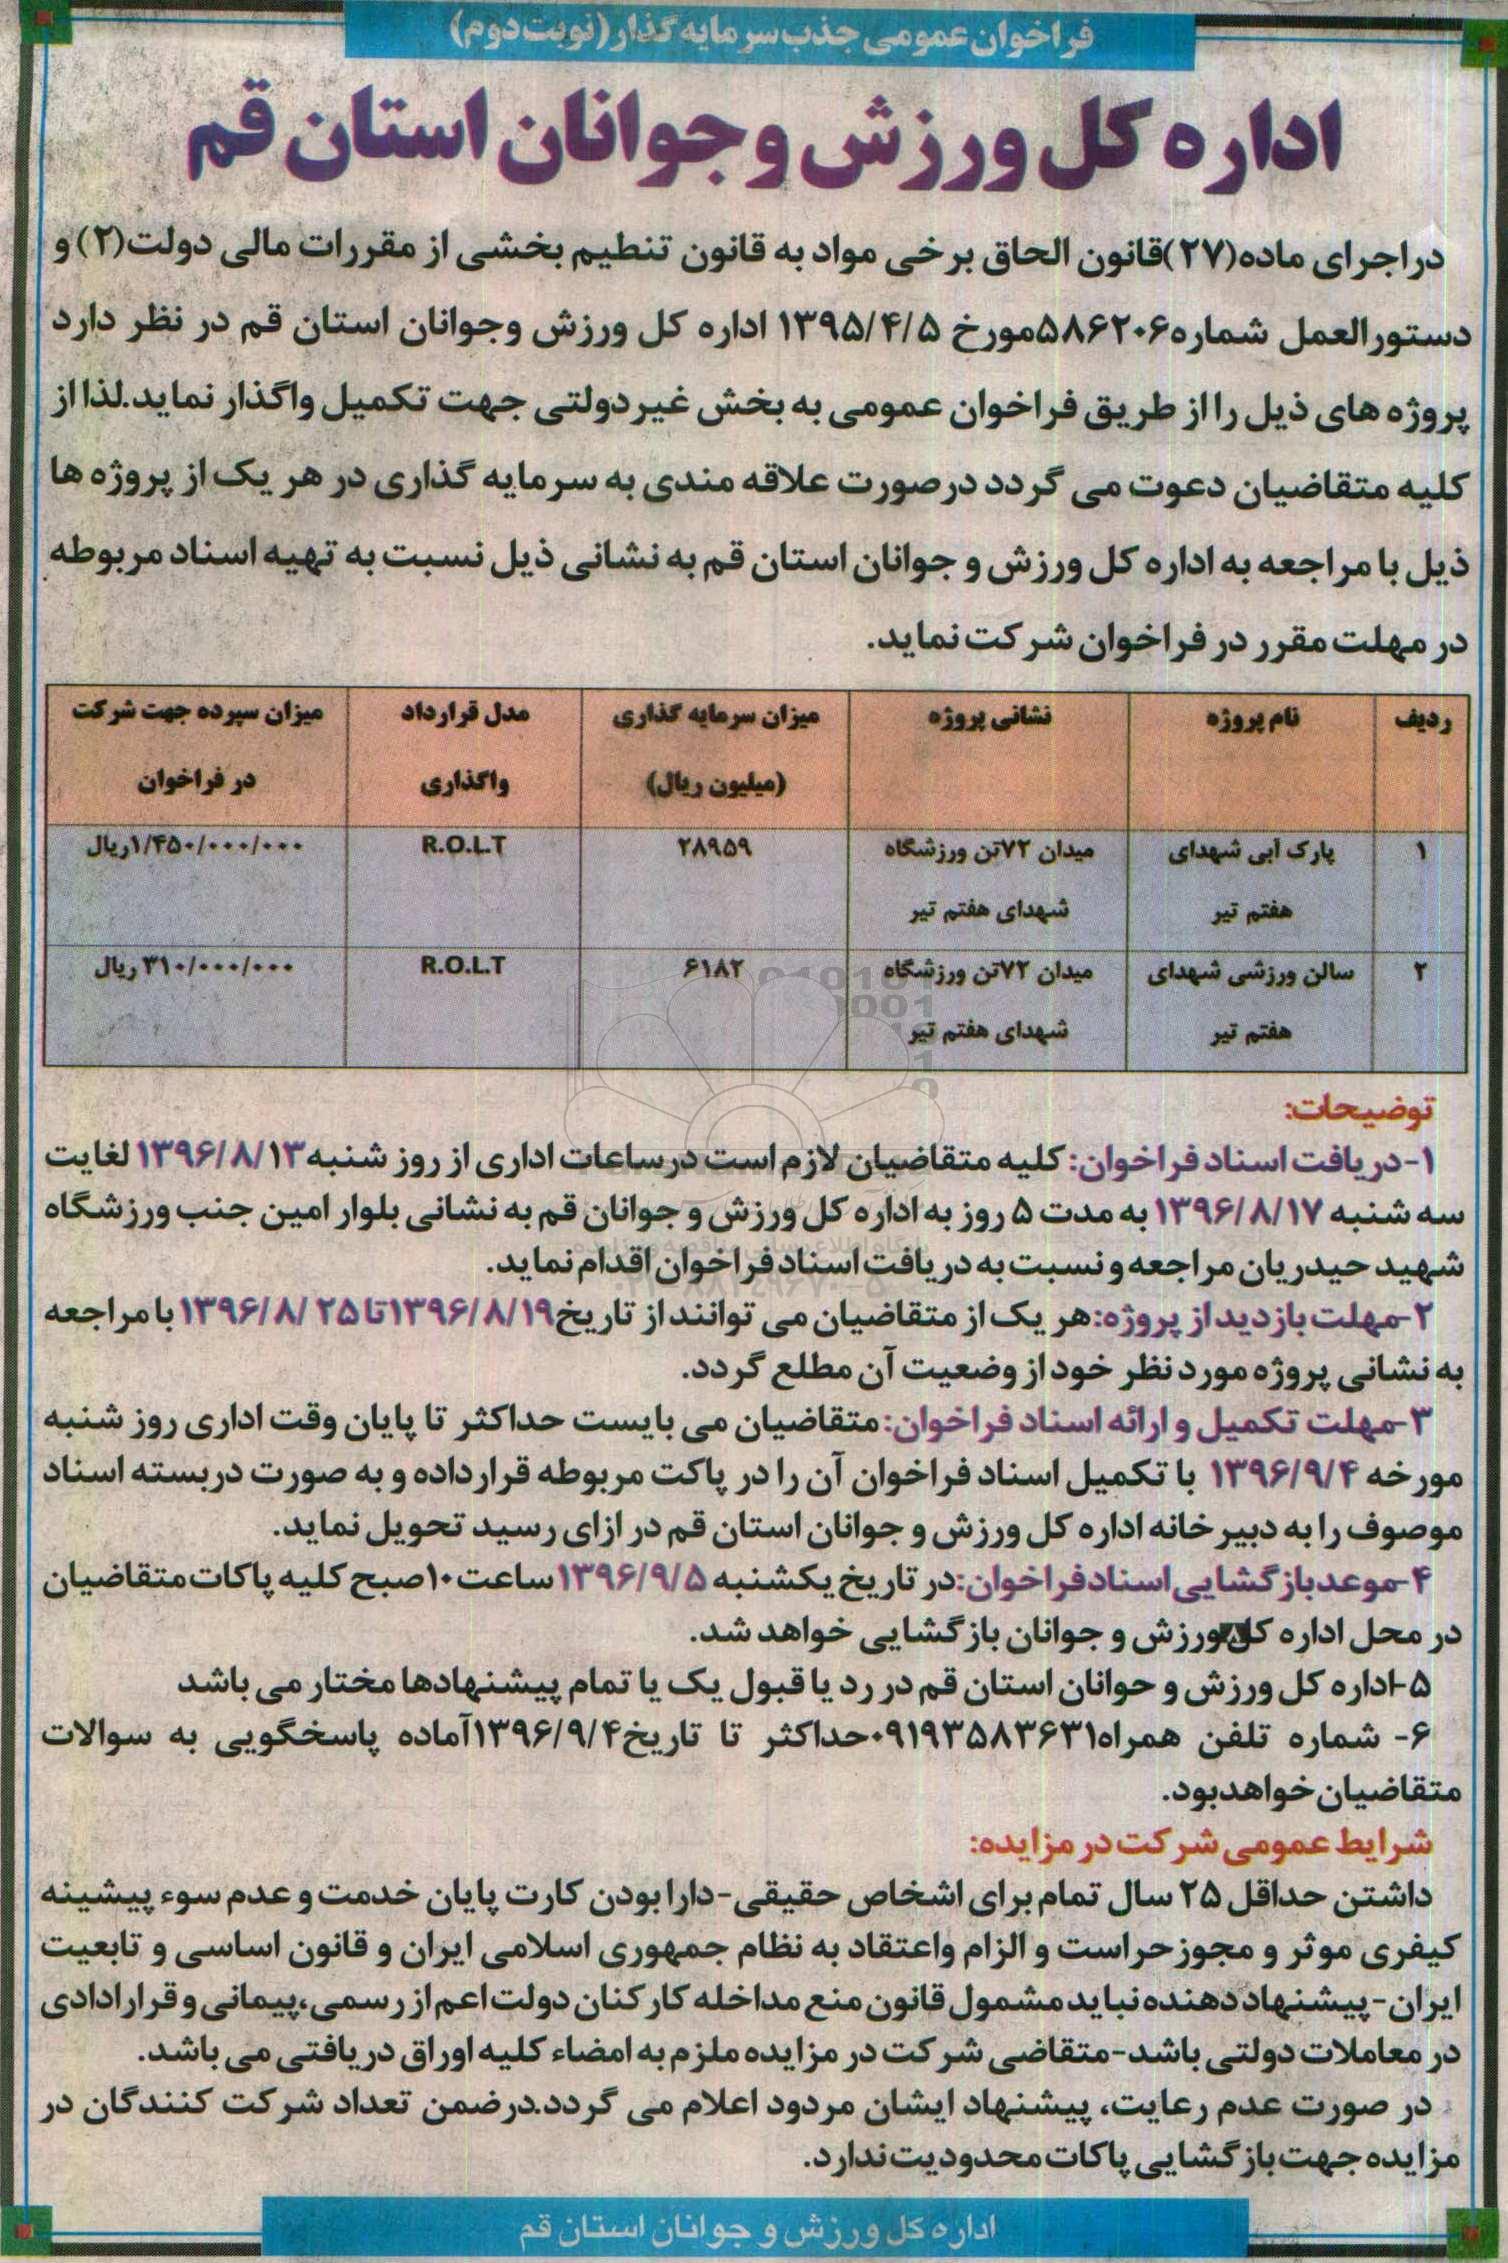 فراخوان عمومی جذب سرمایه گذار (نوبت دوم)
اداره کل ورزش و جوانان استان قم
در اجرای ماده(۲۷)قانون الحاق برخی مواد به قانون تنظیم بخشی از مقررات مالی دولت(۲) و
دستورالعمل شماره۵۸۶۲۰۶مورخ ۱۳۹۵/۴/۵ اداره کل ورزش وجوانان استان قم در نظر دارد
پروژه های ذیل را از طریق فراخوان عمومی به بخش غیردولتی جهت تکمیل واگذار نماید.لذا از
کلیه متقاضیان دعوت می گردد درصورت علاقه مندی به سرمایه گذاری در هر یک از پروژه ها
ذیل با مراجعه به اداره کل ورزش و جوانان استان قم به نشانی ذیل نسبت به تهیه اسناد مربوطه
در مهلت مقرر در فراخوان شرکت نماید.
ردیف نام پروژه نشانی پروژه میزان سرمایه گذاری (میلیون ریال) مدل قرارداد واگذاری میزان سپرده جهت شرکت در فراخوان
۱ پارک آبی شهدای هفتم تیر میدان ۷۲تن ورزشگاه شهدای هفتم تیر ۲۸۹۵۹ R.O.L.T ۱/۴۵۰/۰۰۰/۰۰۰ریال
۲ سالن ورزشی شهدای هفتم تیر میدان ۷۲تن ورزشگاه شهدای هفتم تیر ۶۱۸۲ R.O.L.T ۳۱۰/۰۰۰/۰۰۰ ریال
توضیحات:
۱-دریافت اسناد فراخوان: کلیه متقاضیان لازم است درساعات اداری از روز شنبه۱۳۹۶/۸/۱۳ لغایت
سه شنبه ۱۳۹۶/۸/۱۷ به مدت ۵ روز به اداره کل ورزش و جوانان قم به نشانی بلوار امین جنب ورزشگاه
شهید حیدریان مراجعه و نسبت به دریافت اسناد فراخوان اقدام نماید.
۲-مهلت بازدید از پروژه:هر یک از متقاضیان می توانند از تاریخ۱۳۹۶/۸/۱۹تا ۱۳۹۶/۸/۲۵ با مراجعه
به نشانی پروژه مورد نظر خود از وضعیت آن مطلع گردد.
۳-مهلت تکمیل و ارائه اسناد فراخوان: متقاضیان می بایست حداکثر تا پایان وقت اداری روز شنبه
مورخه ۱۳۹۶/۹/۴ با تکمیل اسناد فراخوان آن را در پاکت مربوطه قرارداده و به صورت دربسته اسناد
موصوف را به دبیرخانه اداره کل ورزش و جوانان استان قم در ازای رسید تحویل نماید.
۴-موعد بازگشایی اسناد فراخوان:در تاریخ یکشنبه ۱۳۹۶/۹/۵ساعت۱۰صبح کلیه پاکات متقاضیان
در محل اداره کل ورزش و جوانان بازگشایی خواهد شد.
۵-اداره کل ورزش و حوانان استان قم در رد یا قبول یک یا تمام پیشنهادها مختار می باشد
۶- شماره تلفن همراه۰۹۱۹۳۵۸۳۶۳۱حداکثر تا تاریخ۱۳۹۶/۹/۴آماده پاسخگویی به سوالات
متقاضیان خواهدبود.
شرایط عمومی شرکت در مزایده:
داشتن حداقل ۲۵ سال تمام برای اشخاص حقیقی-دارا بودن کارت پایان خدمت و عدم سوء پیشینه
کیفری موثر و مجوز حراست و الزام واعتقاد به نظام جمهوری اسلامی ایران و قانون اساسی و تابعیت
ایران-پیشنهاد دهنده نباید مشمول قانون منع مداخله کارکنان دولت اعم از رسمی،پیمانی و قرارادادی
در معاملات دولتی باشد-متقاضی شرکت در مزایده ملزم به امضاء کلیه اوراق دریافتی می باشد.
در صورت عدم رعایت، پیشنهاد ایشان مردود اعلام می گردد.درضمن تعداد شرکت کنندگان در
مزایده جهت بازگشایی پاکات محدودیت ندارد.
اداره کل ورزش و جوانان استان قم